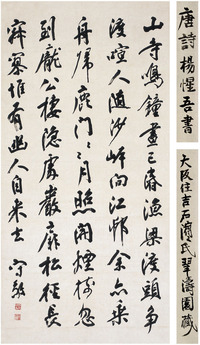 唐詩楊惺吾書
大阪住吉石濱氏翠濤園藏
山寺鳴鐘晝已昏漁梁渡頭爭
渡喧人隨沙岸向江邨余亦乘
舟歸鹿門〻月照開煙樹忽
到龐公棲隱處巖扉松徑長
寂寞惟有幽人自来去 守敬